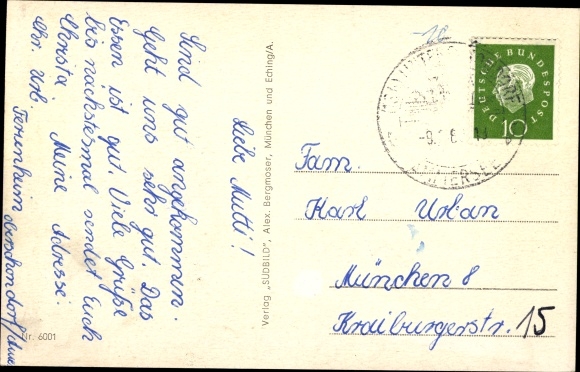 Liebe Mutti!
Sind gut angekommen.
Geht uns sehr gut. Das
Essen ist gut. Viele Grüße
bis nächstesmal sendet Euch
Christa Meine Adresse:
Chr. Urb.
Ferienheim
Verlag „SÜDBILD", Alex. Bergmoser, München und Eching/A.
Nr. 6001
DEUTSCHE BUNDESPOST
10
AMMERSEE
Fam.
Karl Urban
München 8
Kraiburgerstr. 15